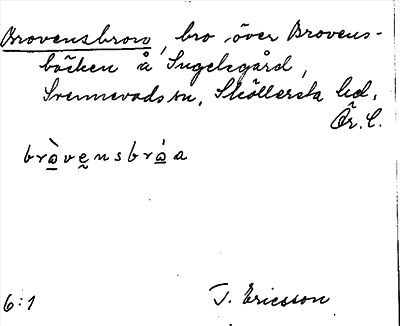 Brovensbron, bro över Brovens-
bäcken å Ingelsgård,
Svennevads sn, Sköllersta hd,
Ör. L.
bròvensbróa
6:1 J. Ericsson